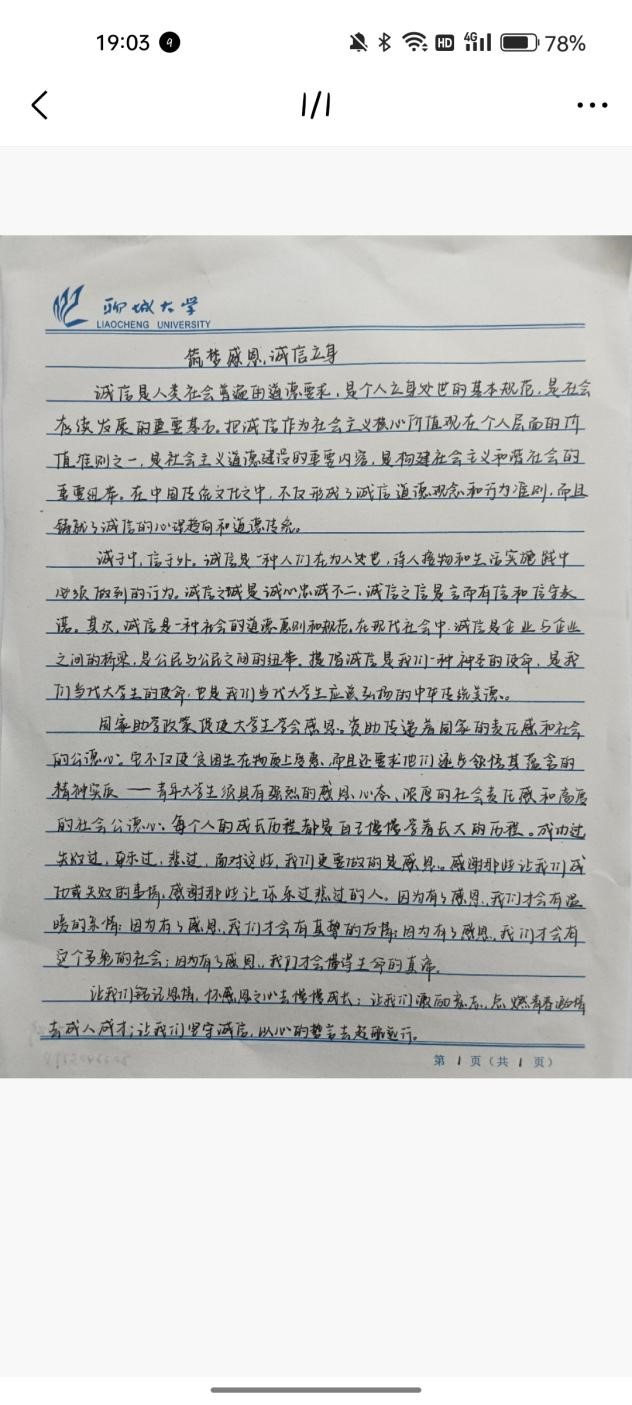 19:03
HD 4G 78%
1/1
聊城大学
LIAOCHENG UNIVERSITY
筑梦感恩,诚信立身
诚信是人类社会普遍的道德要求,是个人立身处世的基本规范,是社会
存续发展的重要基石。把诚信作为社会主义核心价值观在个人层面的价
值准则之一,是社会主义道德建设的重要内容,是构建社会主义和谐社会的
重要纽带。在中国传统文化之中,不仅形成了诚信道德观念和行为准则,而且
铸就了诚信的心理趋向和道德传统。
诚于中,信于外。诚信是一种人们在为人处世,待人接物和生活实施践中
必须做到的行为。诚信之诚是诚心忠诚不二,诚信之信是言而有信和信守承
诺。其次,诚信是一种社会的道德原则和规范,在现代社会中,诚信是企业与企业
之间的桥梁,是公民与公民之间的纽带。提倡诚信是我们一种神圣的使命,是我
们当代大学生的使命,也是我们当代大学生应该弘扬的中华传统美德。
国家助学政策促使大学生学会感恩。资助传递着国家的责任感和社会
的公德心。它不仅使贫困生在物质上受惠,而且还要求他们逐步领悟其蕴含的
精神实质——青年大学生须具有强烈的感恩心态、深厚的社会责任感和高度
的社会公德心。每个人的成长历程都是自己慢慢学着长大的历程。成功过,
失败过,欢乐过,悲过,面对这些,我们更要做的是感恩。感谢那些让我们成
功或失败的事情,感谢那些让你乐过悲过的人。因为有了感恩,我们才会有温
暖的亲情;因为有了感恩,我们才会有真挚的友情;因为有了感恩,我们才会有
这个多彩的社会;因为有了感恩,我们才会懂得生命的真谛。
让我们铭记恩情,怀感恩之心去慢慢成长;让我们激励意志,点燃青春激情
去成人成才;让我们坚守诚信,以心的誓言去起航远行。
第 1 页(共 1 页)